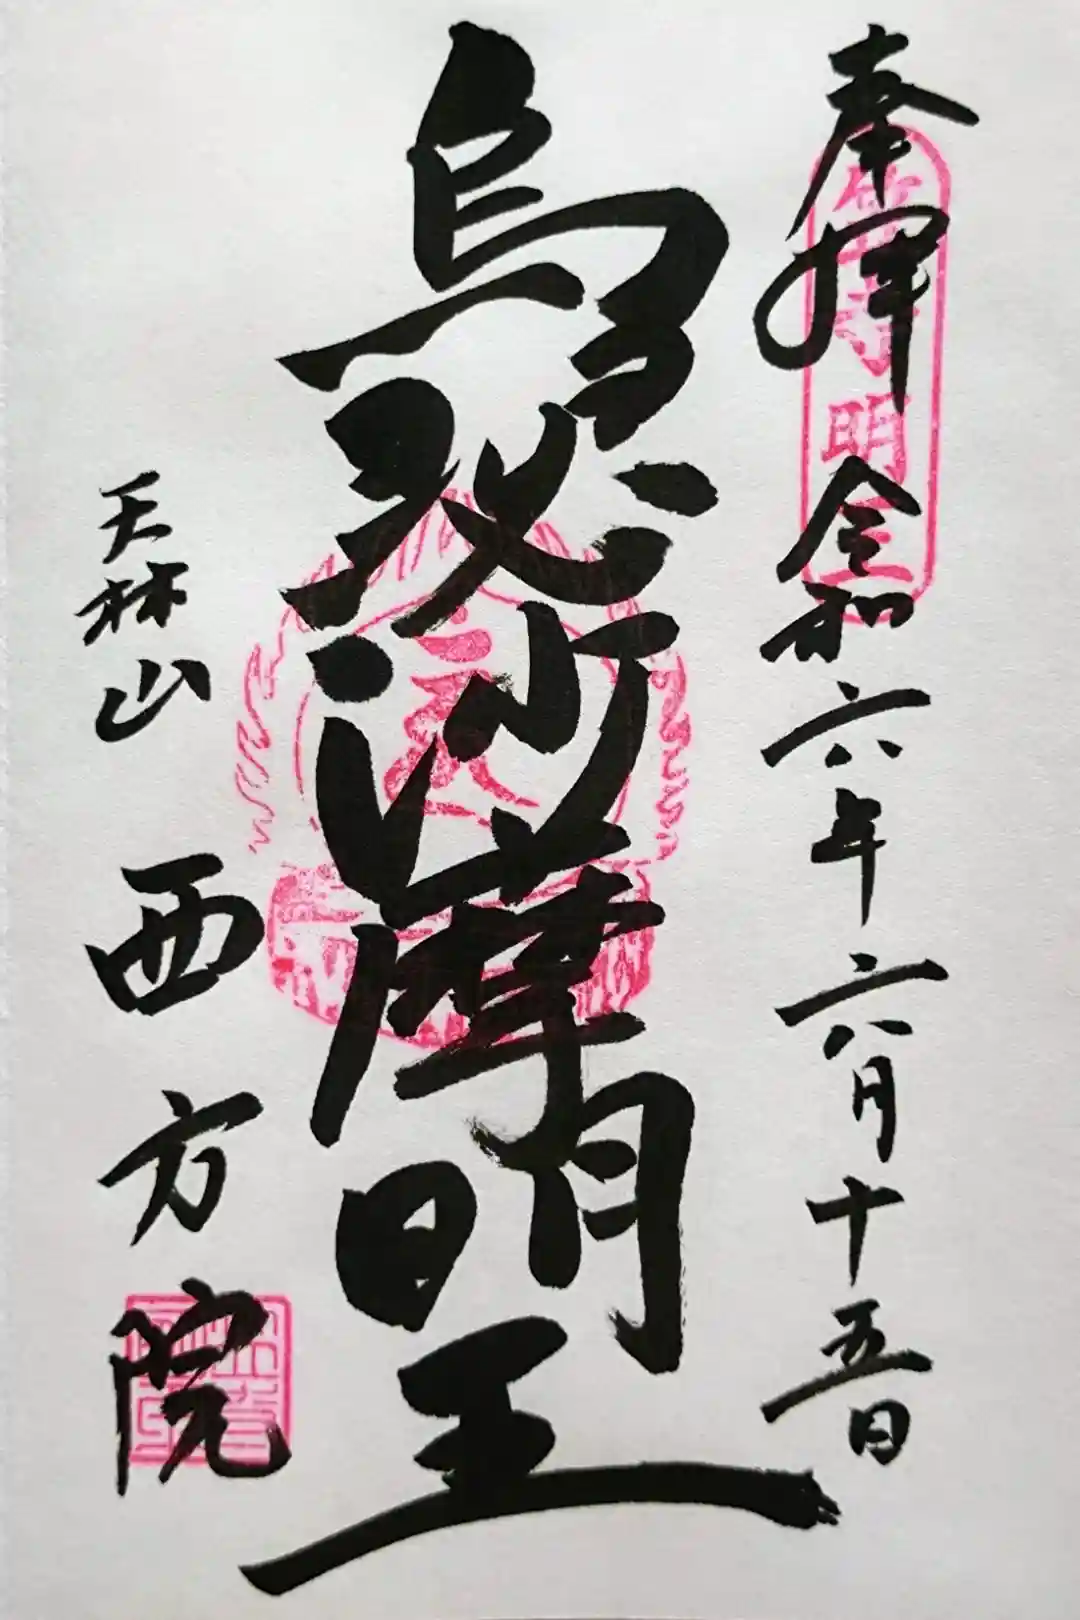 奉拝
令和六年六月十五日
烏芻沙摩明王
天林山
西方院